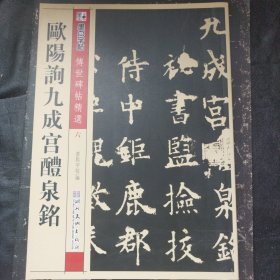 歐陽詢九成宮醴泉銘
墨點字帖
傳世碑帖精選
六
九成宮醴泉銘
秘書監撿挍
侍中鉅鹿郡